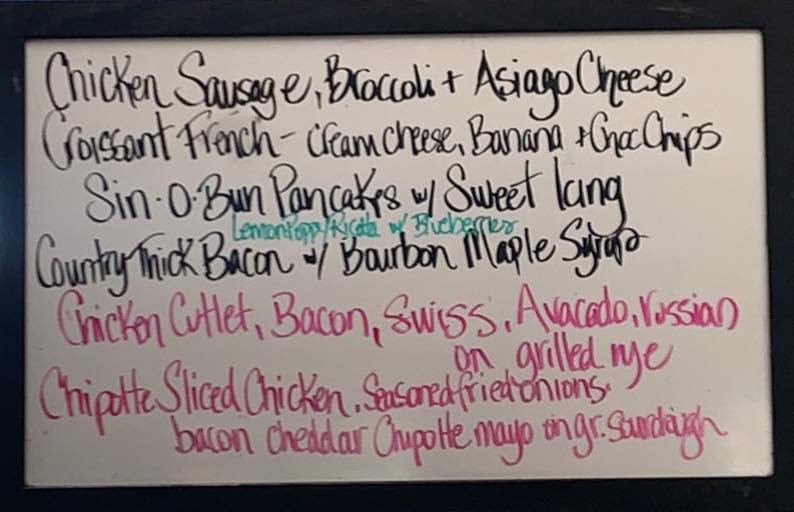 Chicken Sausage, Broccoli + Asiago Cheese
Croissant French - Cream Cheese, Banana + Choc Chips
Sin-O-Bun Pancakes w/ Sweet Icing
Lemon Poppy/Ricotta w/ Blueberries
Country Thick Bacon w/ Bourbon Maple Syrup
Chicken Cutlet, Bacon, Swiss, Avacado, Russian
on grilled rye
Chipotte Sliced Chicken, Seasoned fried onions,
bacon cheddar Chipotte mayo on gr. Sourdough